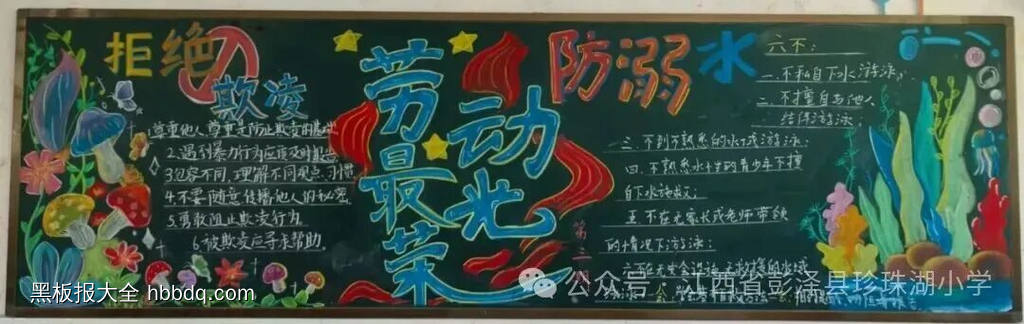 拒绝
欺凌
尊重他人 尊重是防止欺凌的基础
2.遇到暴力行为应及时报告
3.包容不同,理解不同观点、习惯
4.不要随意传播他人的秘密
5.勇敢阻止欺凌行为
6.被欺凌应寻求帮助
劳动
最光
荣
防溺水
六不:
一.不私自下水游泳;
二.不擅自与他人
结伴游泳;
三.不到不熟悉的水域游泳;
四.不熟悉水性的青少年不擅
自下水施救;
五.不在无家长或老师带领
的情况下游泳;
六.不在无安全设施、无救援的水域
黑板报大全 hbbdq.com
公众号 · 江西省彭泽县珍珠湖小学